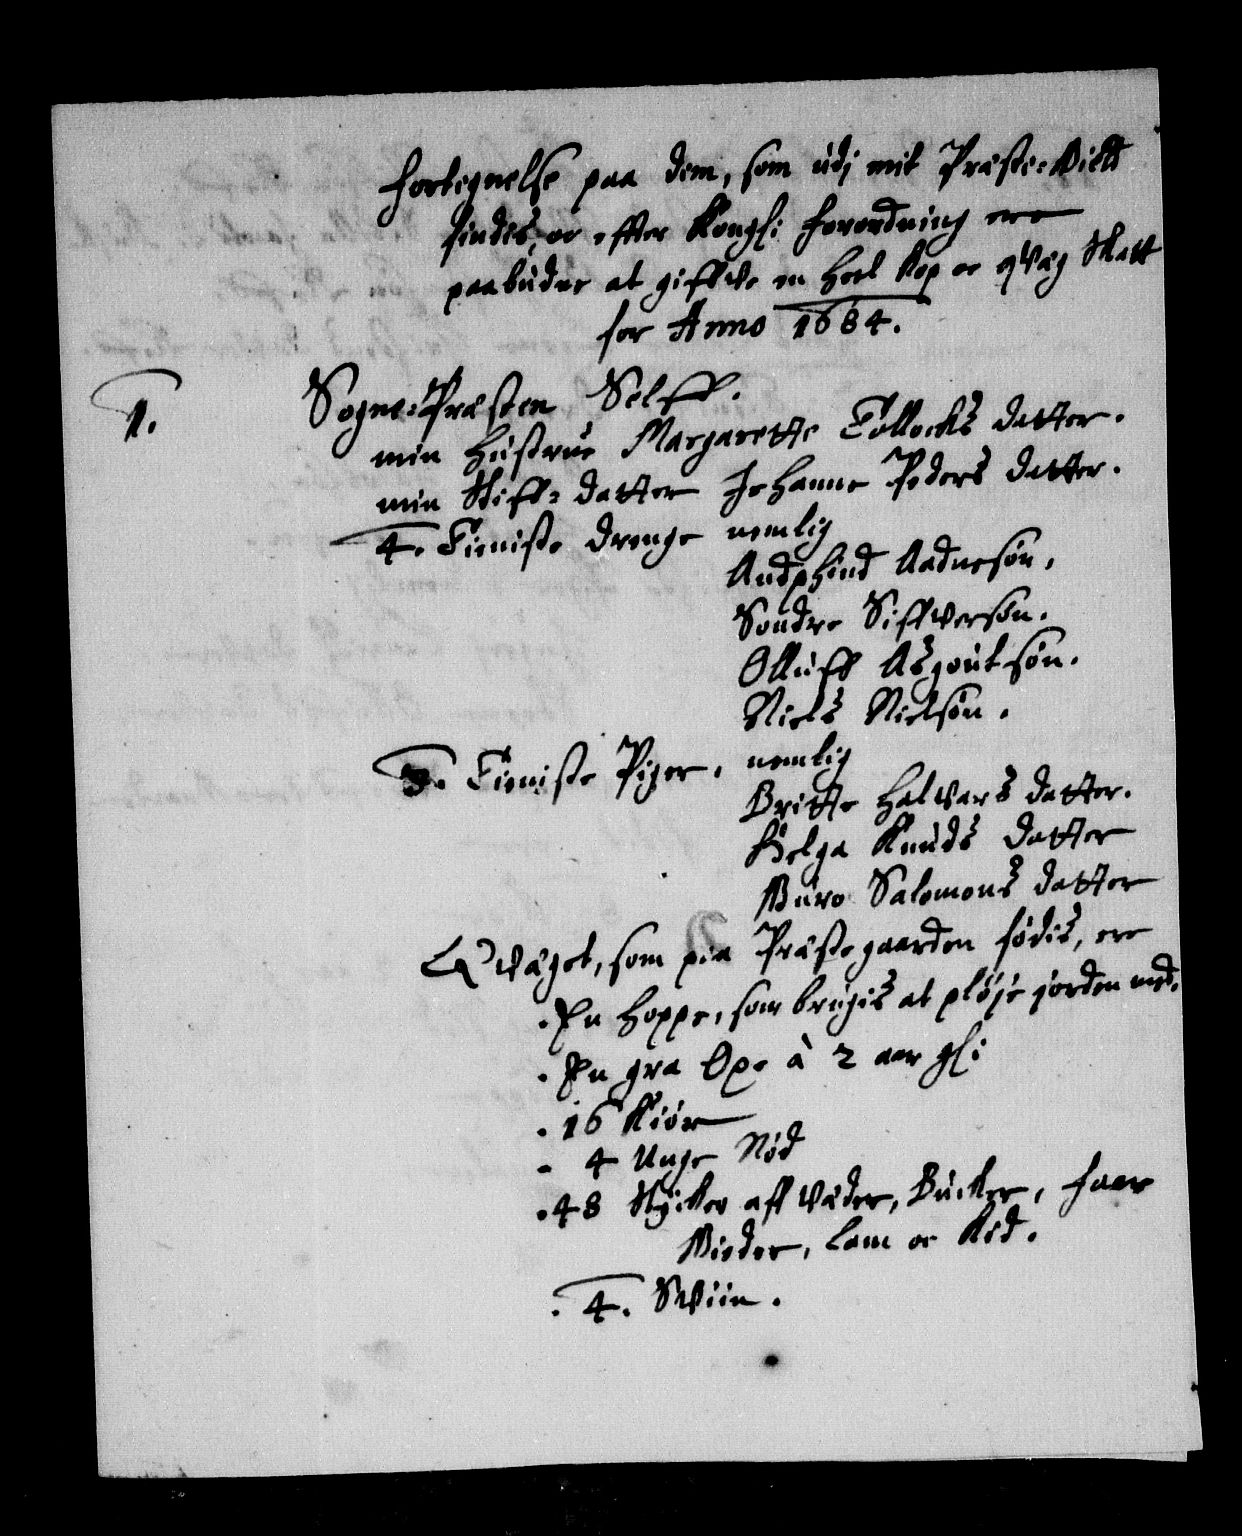 Fortegnelse paa dem, som udj mit Præste-Gield
findis, oc efter Kongl: forordning ere
paabudne at giffve en heel Kop oc qvæg Skatt
for Anno 1684.
1. Sogne-Præsten Selff.
min Hustrue Margarette Tollocks datter.
min Stiff-datter Johanne Peders datter.
4. Tieniste Drenge nemlig
Andphind Aadnesøn.
Sondre Siffversøn.
Olluff Asgoutsøn.
Niels Nielsøn.
3. Tieniste Piger, nemlig
Britte Halvars datter.
Helga Knuds datter
Guro Salomons datter
Qvæget, som paa Præstegaarden födis, ere
En hoppe, som brugis at pløje jorden med.
En gra Oxe à 2 aar gl:
16 Kiør
4 Unge Nød
48 Stÿcker aff Væder, Bucker, faar
Gieder, lam oc Kid.
4. Sviin.